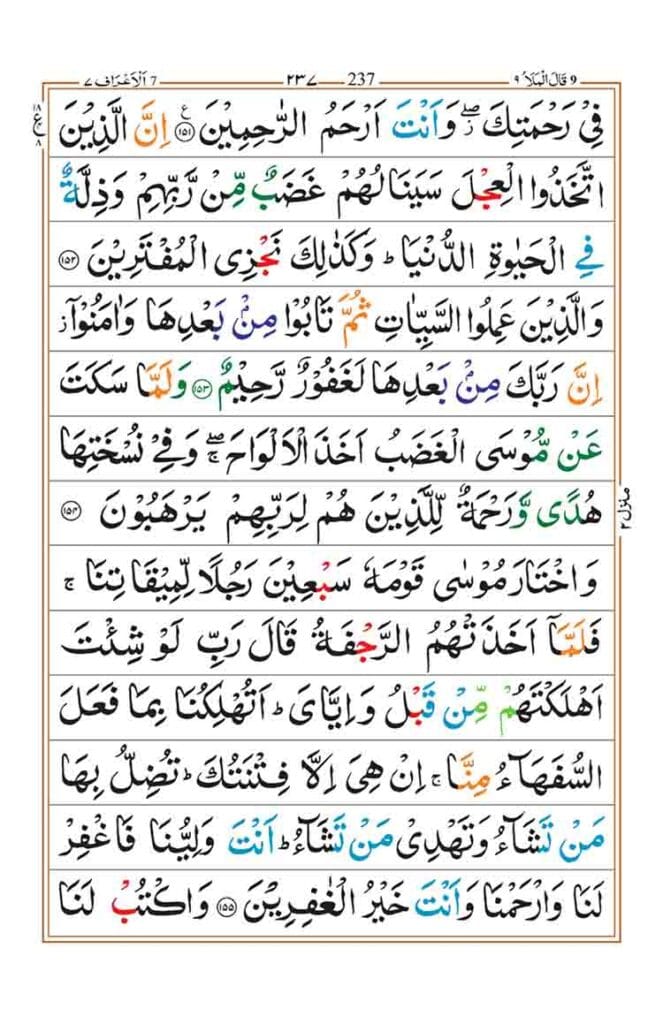 9 قَالَ الْمَلَاُ ٩ 237 ٢٣٧ 7 اَلْاَعْرَاف ٧
فِیْ رَحْمَتِكَ ۖ٘ وَاَنْتَ اَرْحَمُ الرّٰحِمِیْنَ ۧ﴿۱۵۱﴾ اِنَّ الَّذِیْنَ
١٨ ع ٨
اتَّخَذُوا الْعِجْلَ سَیَنَالُهُمْ غَضَبٌ مِّنْ رَّبِّهِمْ وَذِلَّةٌ
فِی الْحَیٰوةِ الدُّنْیَا ؕ وَكَذٰلِكَ نَجْزِی الْمُفْتَرِیْنَ ﴿۱۵۲﴾
وَالَّذِیْنَ عَمِلُوا السَّیِّاٰتِ ثُمَّ تَابُوْا مِنْۢ بَعْدِهَا وَاٰمَنُوْۤا ؗ
اِنَّ رَبَّكَ مِنْۢ بَعْدِهَا لَغَفُوْرٌ رَّحِیْمٌ ﴿۱۵۳﴾ وَلَمَّا سَكَتَ
عَنْ مُّوْسَی الْغَضَبُ اَخَذَ الْاَلْوَاحَ ۖۚ وَفِیْ نُسْخَتِهَا
هُدًی وَّرَحْمَةٌ لِّلَّذِیْنَ هُمْ لِرَبِّهِمْ یَرْهَبُوْنَ ﴿۱۵۴﴾
منزل ٢
وَاخْتَارَ مُوْسٰی قَوْمَهٗ سَبْعِیْنَ رَجُلًا لِّمِیْقَاتِنَا ۚ
فَلَمَّاۤ اَخَذَتْهُمُ الرَّجْفَةُ قَالَ رَبِّ لَوْ شِئْتَ
اَهْلَكْتَهُمْ مِّنْ قَبْلُ وَاِیَّایَ ؕ اَتُهْلِكُنَا بِمَا فَعَلَ
السُّفَهَآءُ مِنَّا ۚ اِنْ هِیَ اِلَّا فِتْنَتُكَ ؕ تُضِلُّ بِهَا
مَنْ تَشَآءُ وَتَهْدِیْ مَنْ تَشَآءُ ؕ اَنْتَ وَلِیُّنَا فَاغْفِرْ
لَنَا وَارْحَمْنَا وَاَنْتَ خَیْرُ الْغٰفِرِیْنَ ﴿۱۵۵﴾ وَاكْتُبْ لَنَا